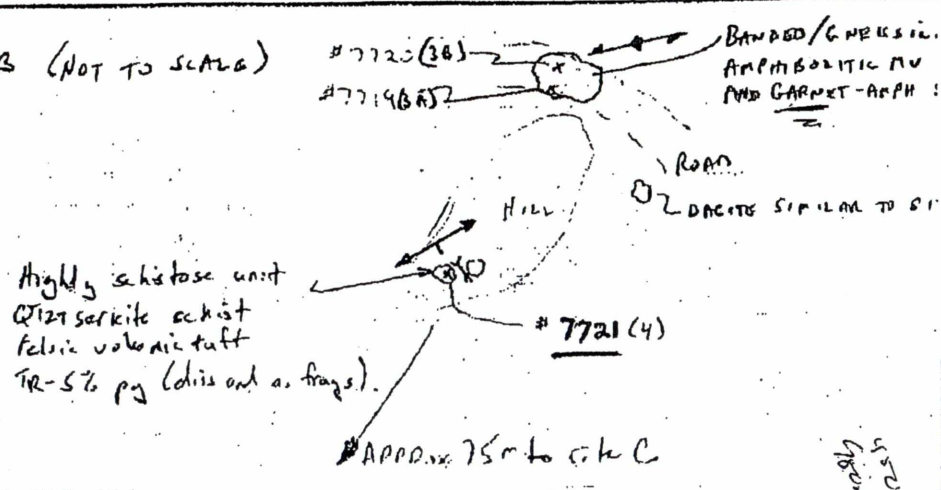 B (NOT TO SCALE)
#7720 (3B)
#7719 (3A)
BANDED/GNEISSIC
AMPHIBOLITIC MV
AND GARNET-AMPH
ROAD
DACITE SIMILAR TO SI
HILL
Highly schistose unit
QTZT sericite schist
Felsic volcanic tuff
TR-5% py (diss and as frags).
# 7721 (4)
APPROX 75m to site C